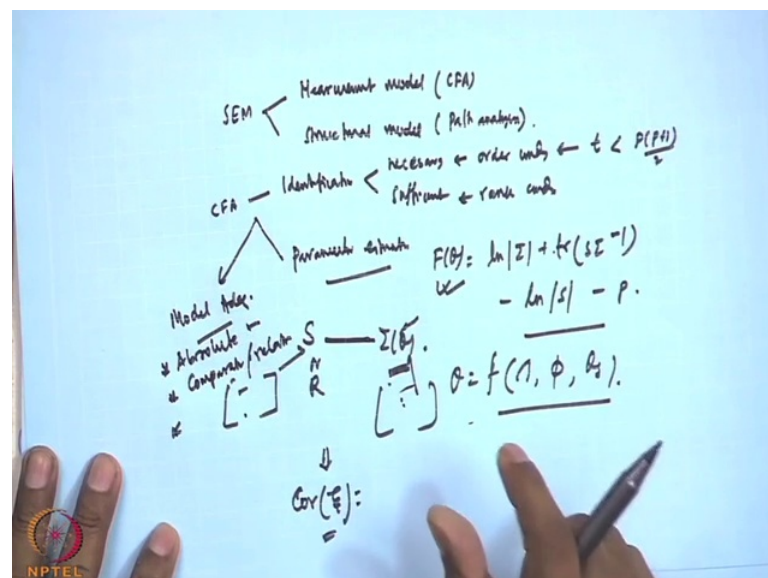 SEM
Measurement model (CFA)
Structural model (Path analysis).
CFA — Identification
necessary ← order cond ← t < P(P+1)/2
sufficient ← rank cond
Parameter estimate
F(θ) = ln|Σ| + tr(SΣ⁻¹)
- ln|S| - P.
Model Adeq.
* Absolute
* Comparative/relative
*
S — Σ(θ).
R
θ = f(Λ, Φ, θδ).
⇓
Cov(ξ):
NPTEL